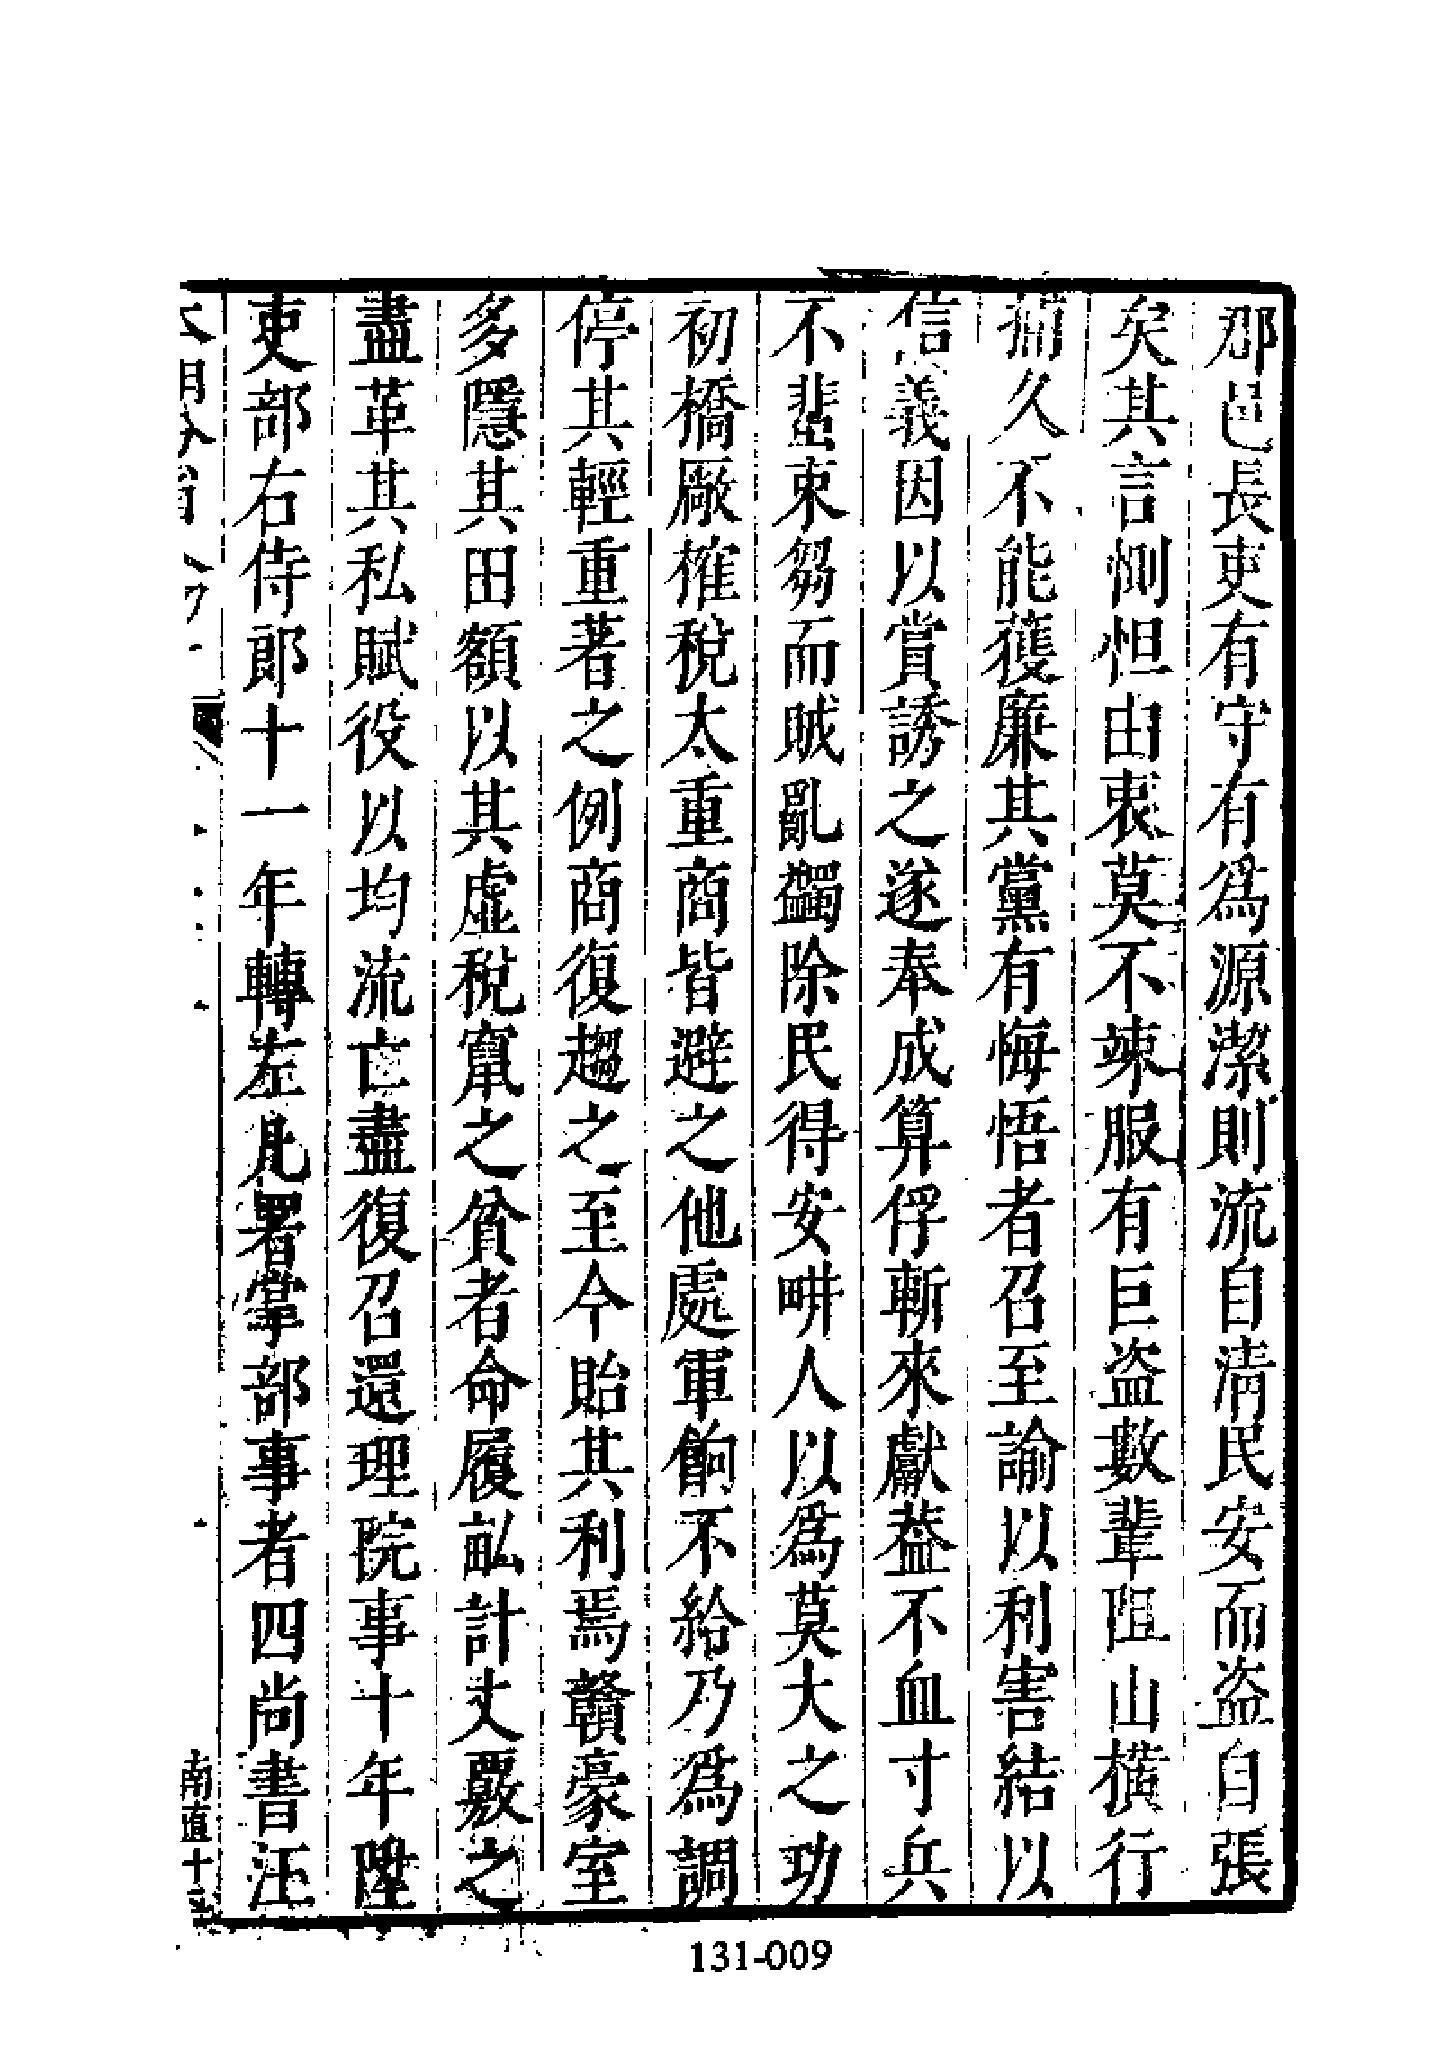 郡邑長吏有守有為源潔則流自清民安而盗自張
矣其言惻怛由衷莫不竦服有巨盗數輩阻山横行
捕久不能獲廉其黨有悔悟者召至諭以利害結以
信義因以賞誘之遂奉成算俘斬來獻葢不血寸兵
不蜚束芻而賊亂蠲除民得安畊人以為莫大之功
初橋厰榷稅太重商皆避之他處軍餉不給乃為調
停其輕重著之例商復趨之至今貽其利焉贛豪室
多隱其田額以其虛稅竄之貧者命履畆計丈覈之
盡革其私賦役以均流亡盡復召還理院事十年陞
吏部右侍郎十一年轉左凡署掌部事者四尚書汪
南直十
131-009